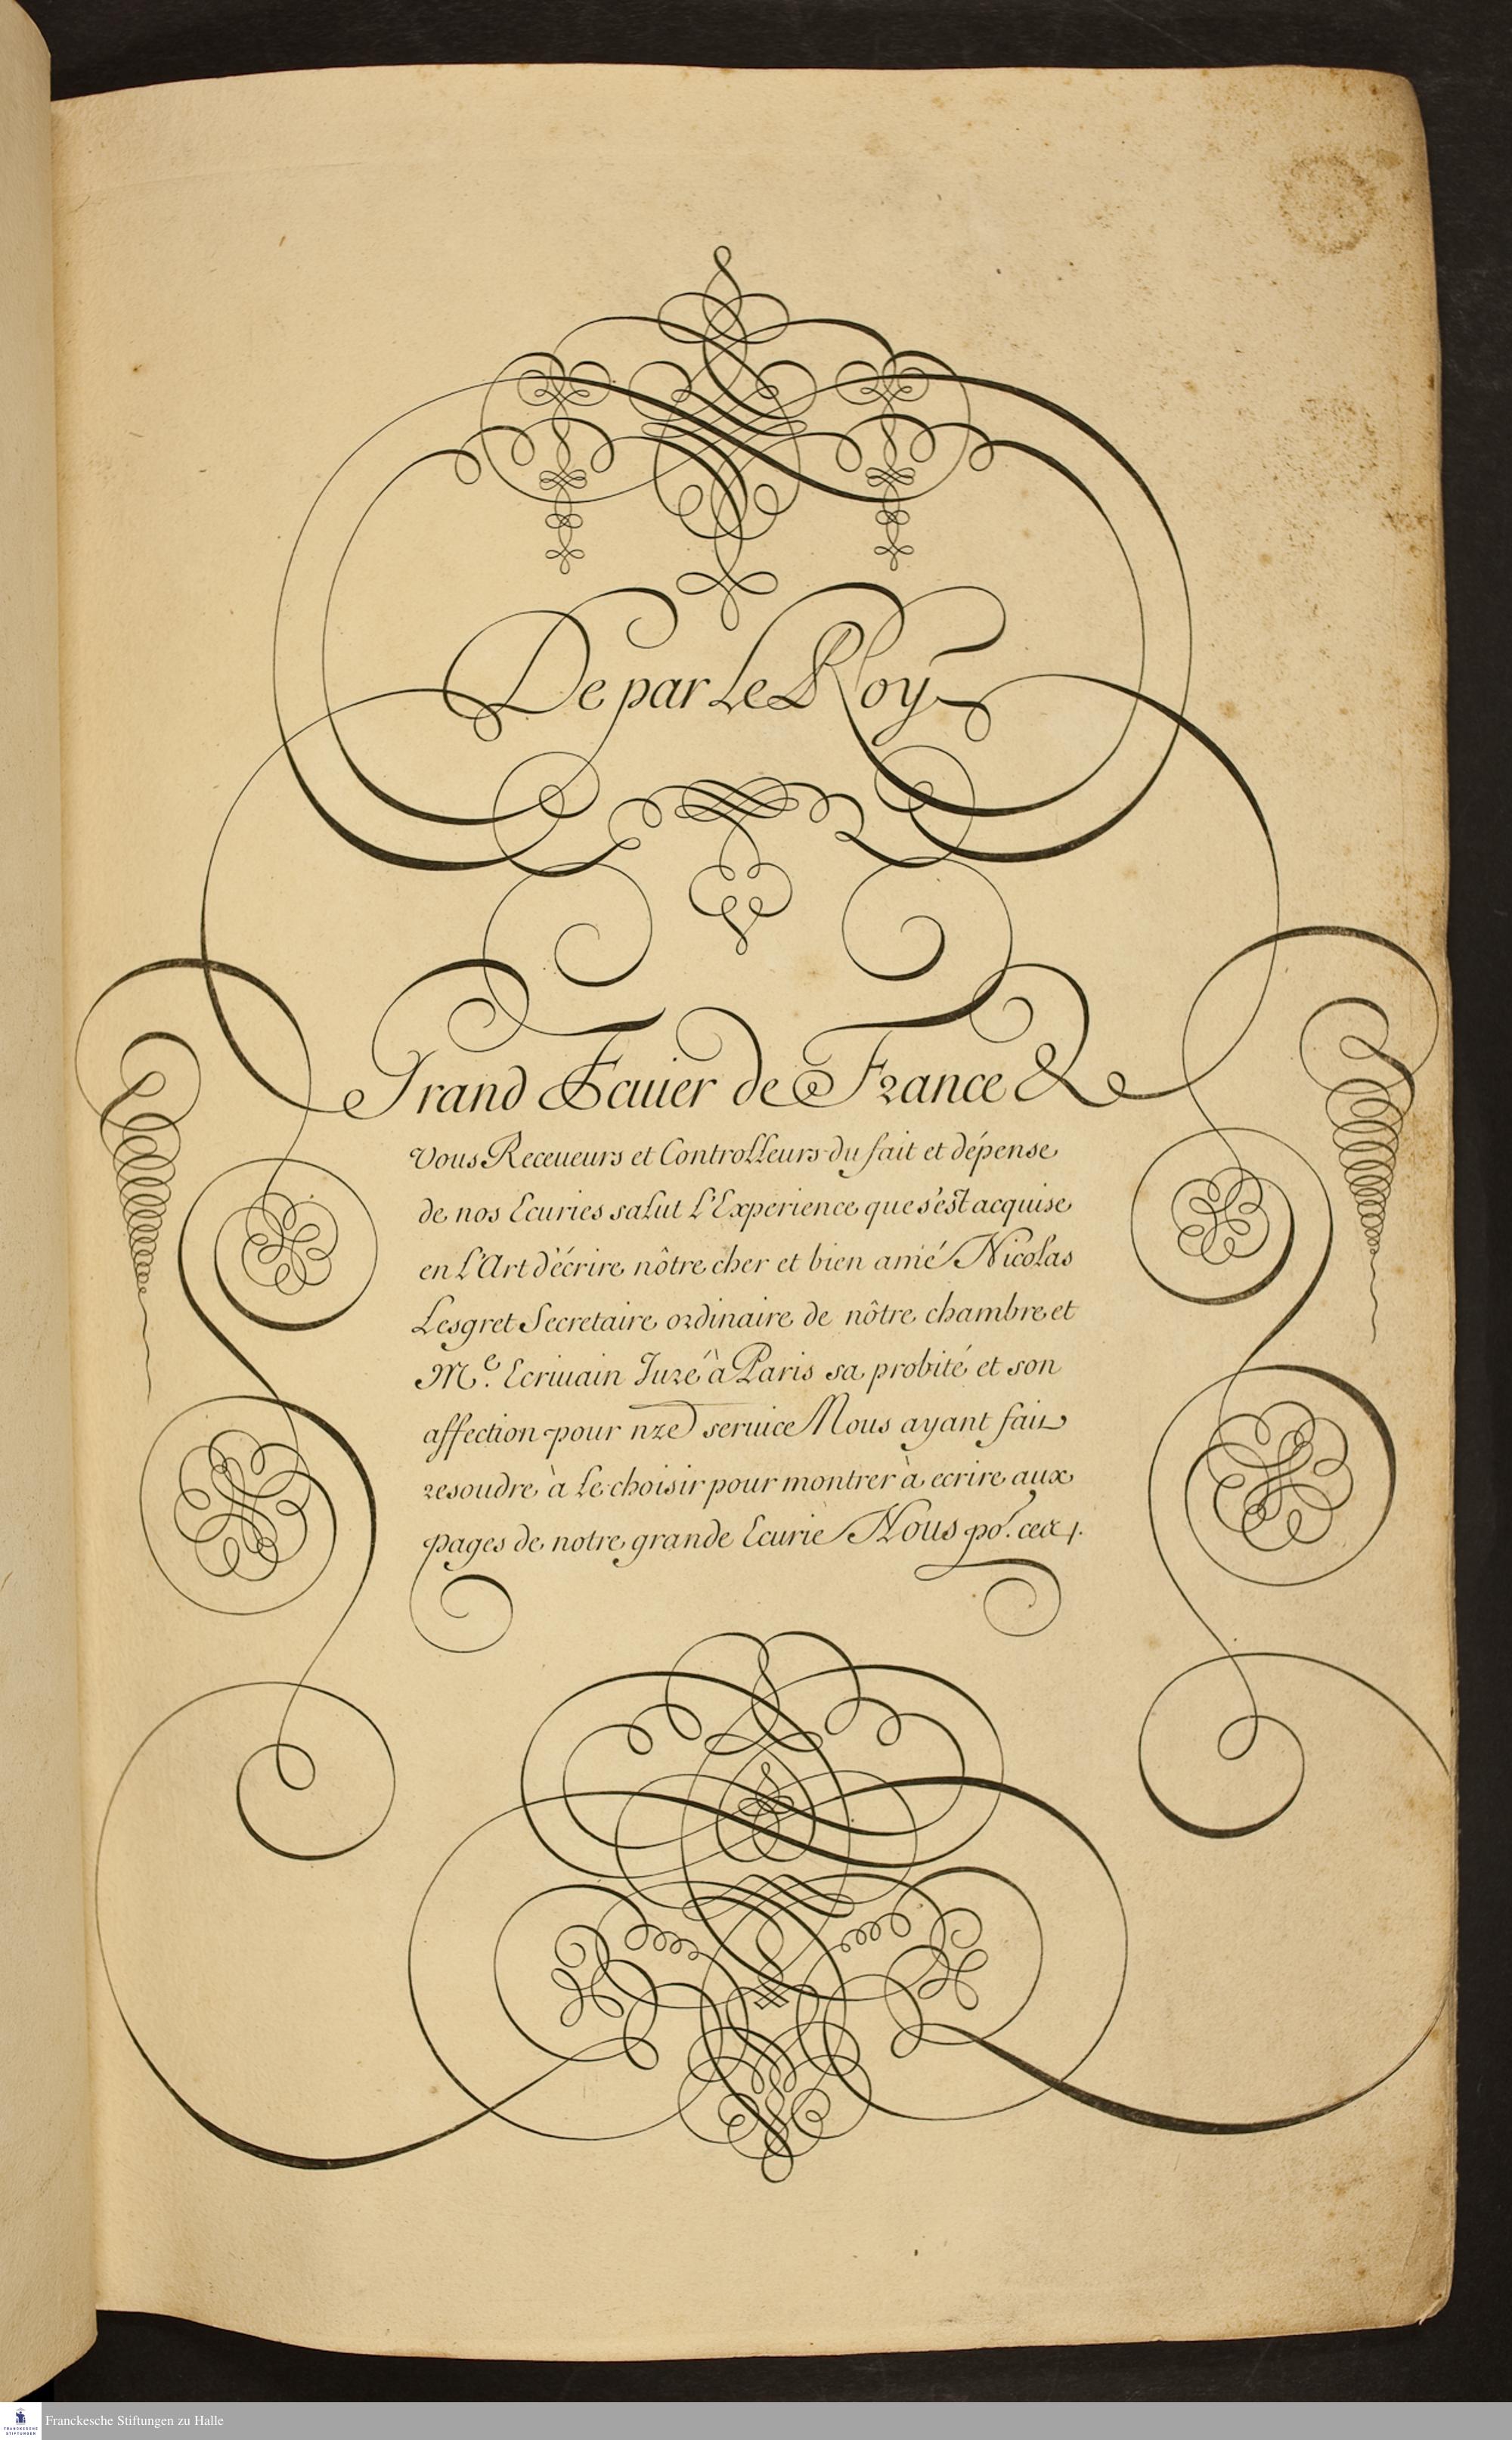 De par Le Roy
Grand Ecuier de France &
Vous Receueurs et Controlleurs du fait et dépense
de nos Ecuries salut L'Experience que s'est acquise
en L'Art d'écrire nôtre cher et bien amé Nicolas
Lesgret Secretaire ordinaire de nôtre chambre et
Me. Ecriuain Juré à Paris sa probité et son
affection pour nre seruice Nous ayant fait
resoudre à le choisir pour montrer à ecrire aux
pages de notre grande Ecurie Nous po.r ces
Franckesche Stiftungen zu Halle
FRANCKESCHE
STIFTUNGEN